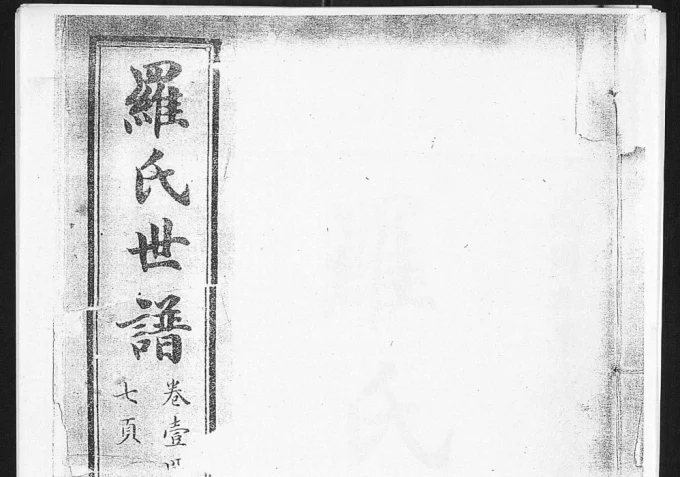 羅氏世譜
卷壹
七頁